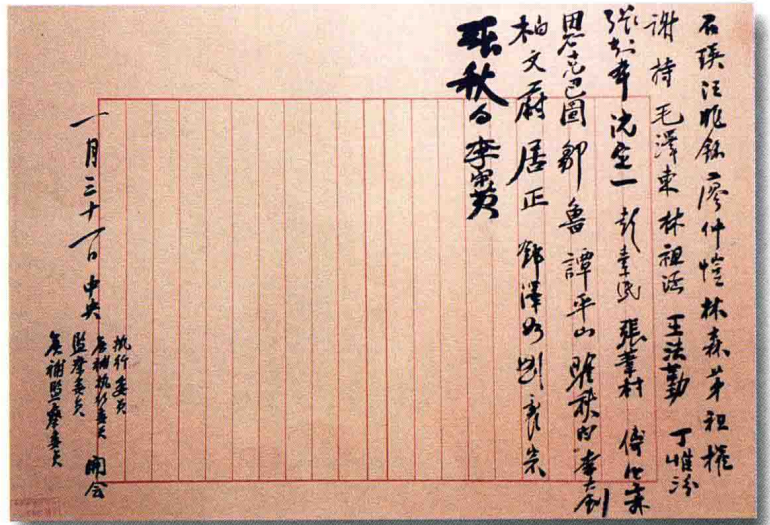 石瑛 汪兆銘 廖仲愷 林森 茅祖權
謝持 毛澤東 林祖涵 王法勤 丁惟汾
張知本 沈定一 彭素民 張葦村 傅汝霖
恩克巴圖 鄒魯 譚平山 瞿秋白 李大釗
柏文蔚 居正 鄧澤如 劉震寰
張秋白 李宗黃
一月三十一日 中央
執行委員
候補執行委員
監察委員
候補監察委員
開会